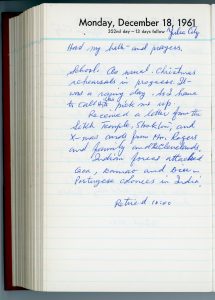 Monday, December 18, 1961
352nd day – 13 days follow
Yuba City
And my bath and prayers.
School. As usual. Christmas
rehearsals in progress. It
was a rainy day. So I have
to call to pick me up.
Received a letter from the
Sikh Temple, Stockton, and
X-mas cards from Mr. Rogers
and family and the Clevelands.
Indian forces attacked
Goa, Daman and Diu
Portuguese colonies in India.
Retired 10:00